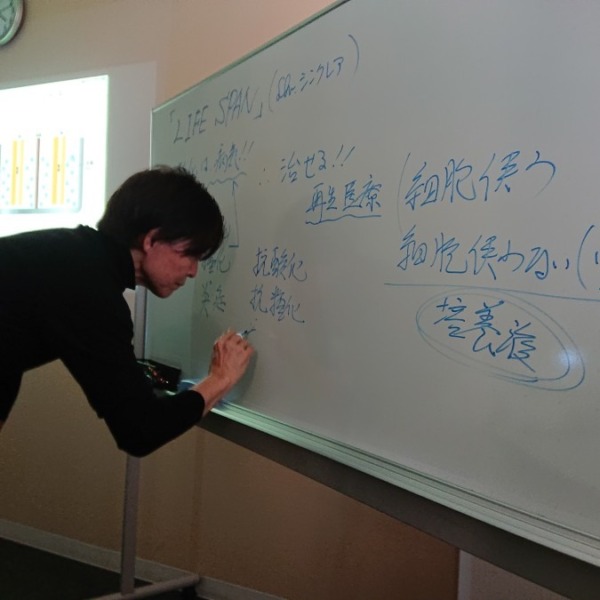 「LIFE SPAN」(Dr.シンクレア)
は病気!! ∴治せる!!
再生医療 (細胞使う
細胞使わない(
抗酸化
炎症 抗糖化
培養液